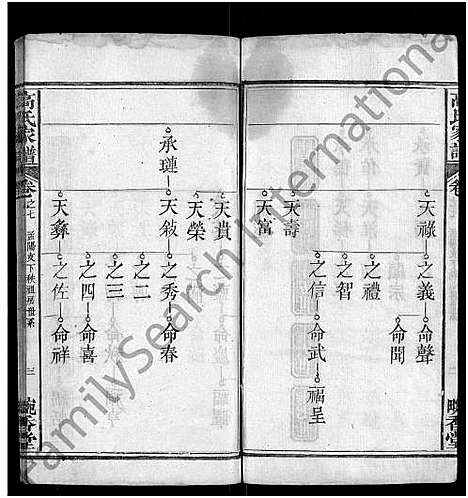 高氏家譜
卷
天祿
之義
命聲
命聞
之禮
之智
之信
命武
福呈
天壽
天富
天貴
天榮
承璉
天敍
之秀
命春
之二
之三
之四
命喜
天彝
之佐
命祥
高氏家譜
卷之七
三
畹香堂
FamilySearch International